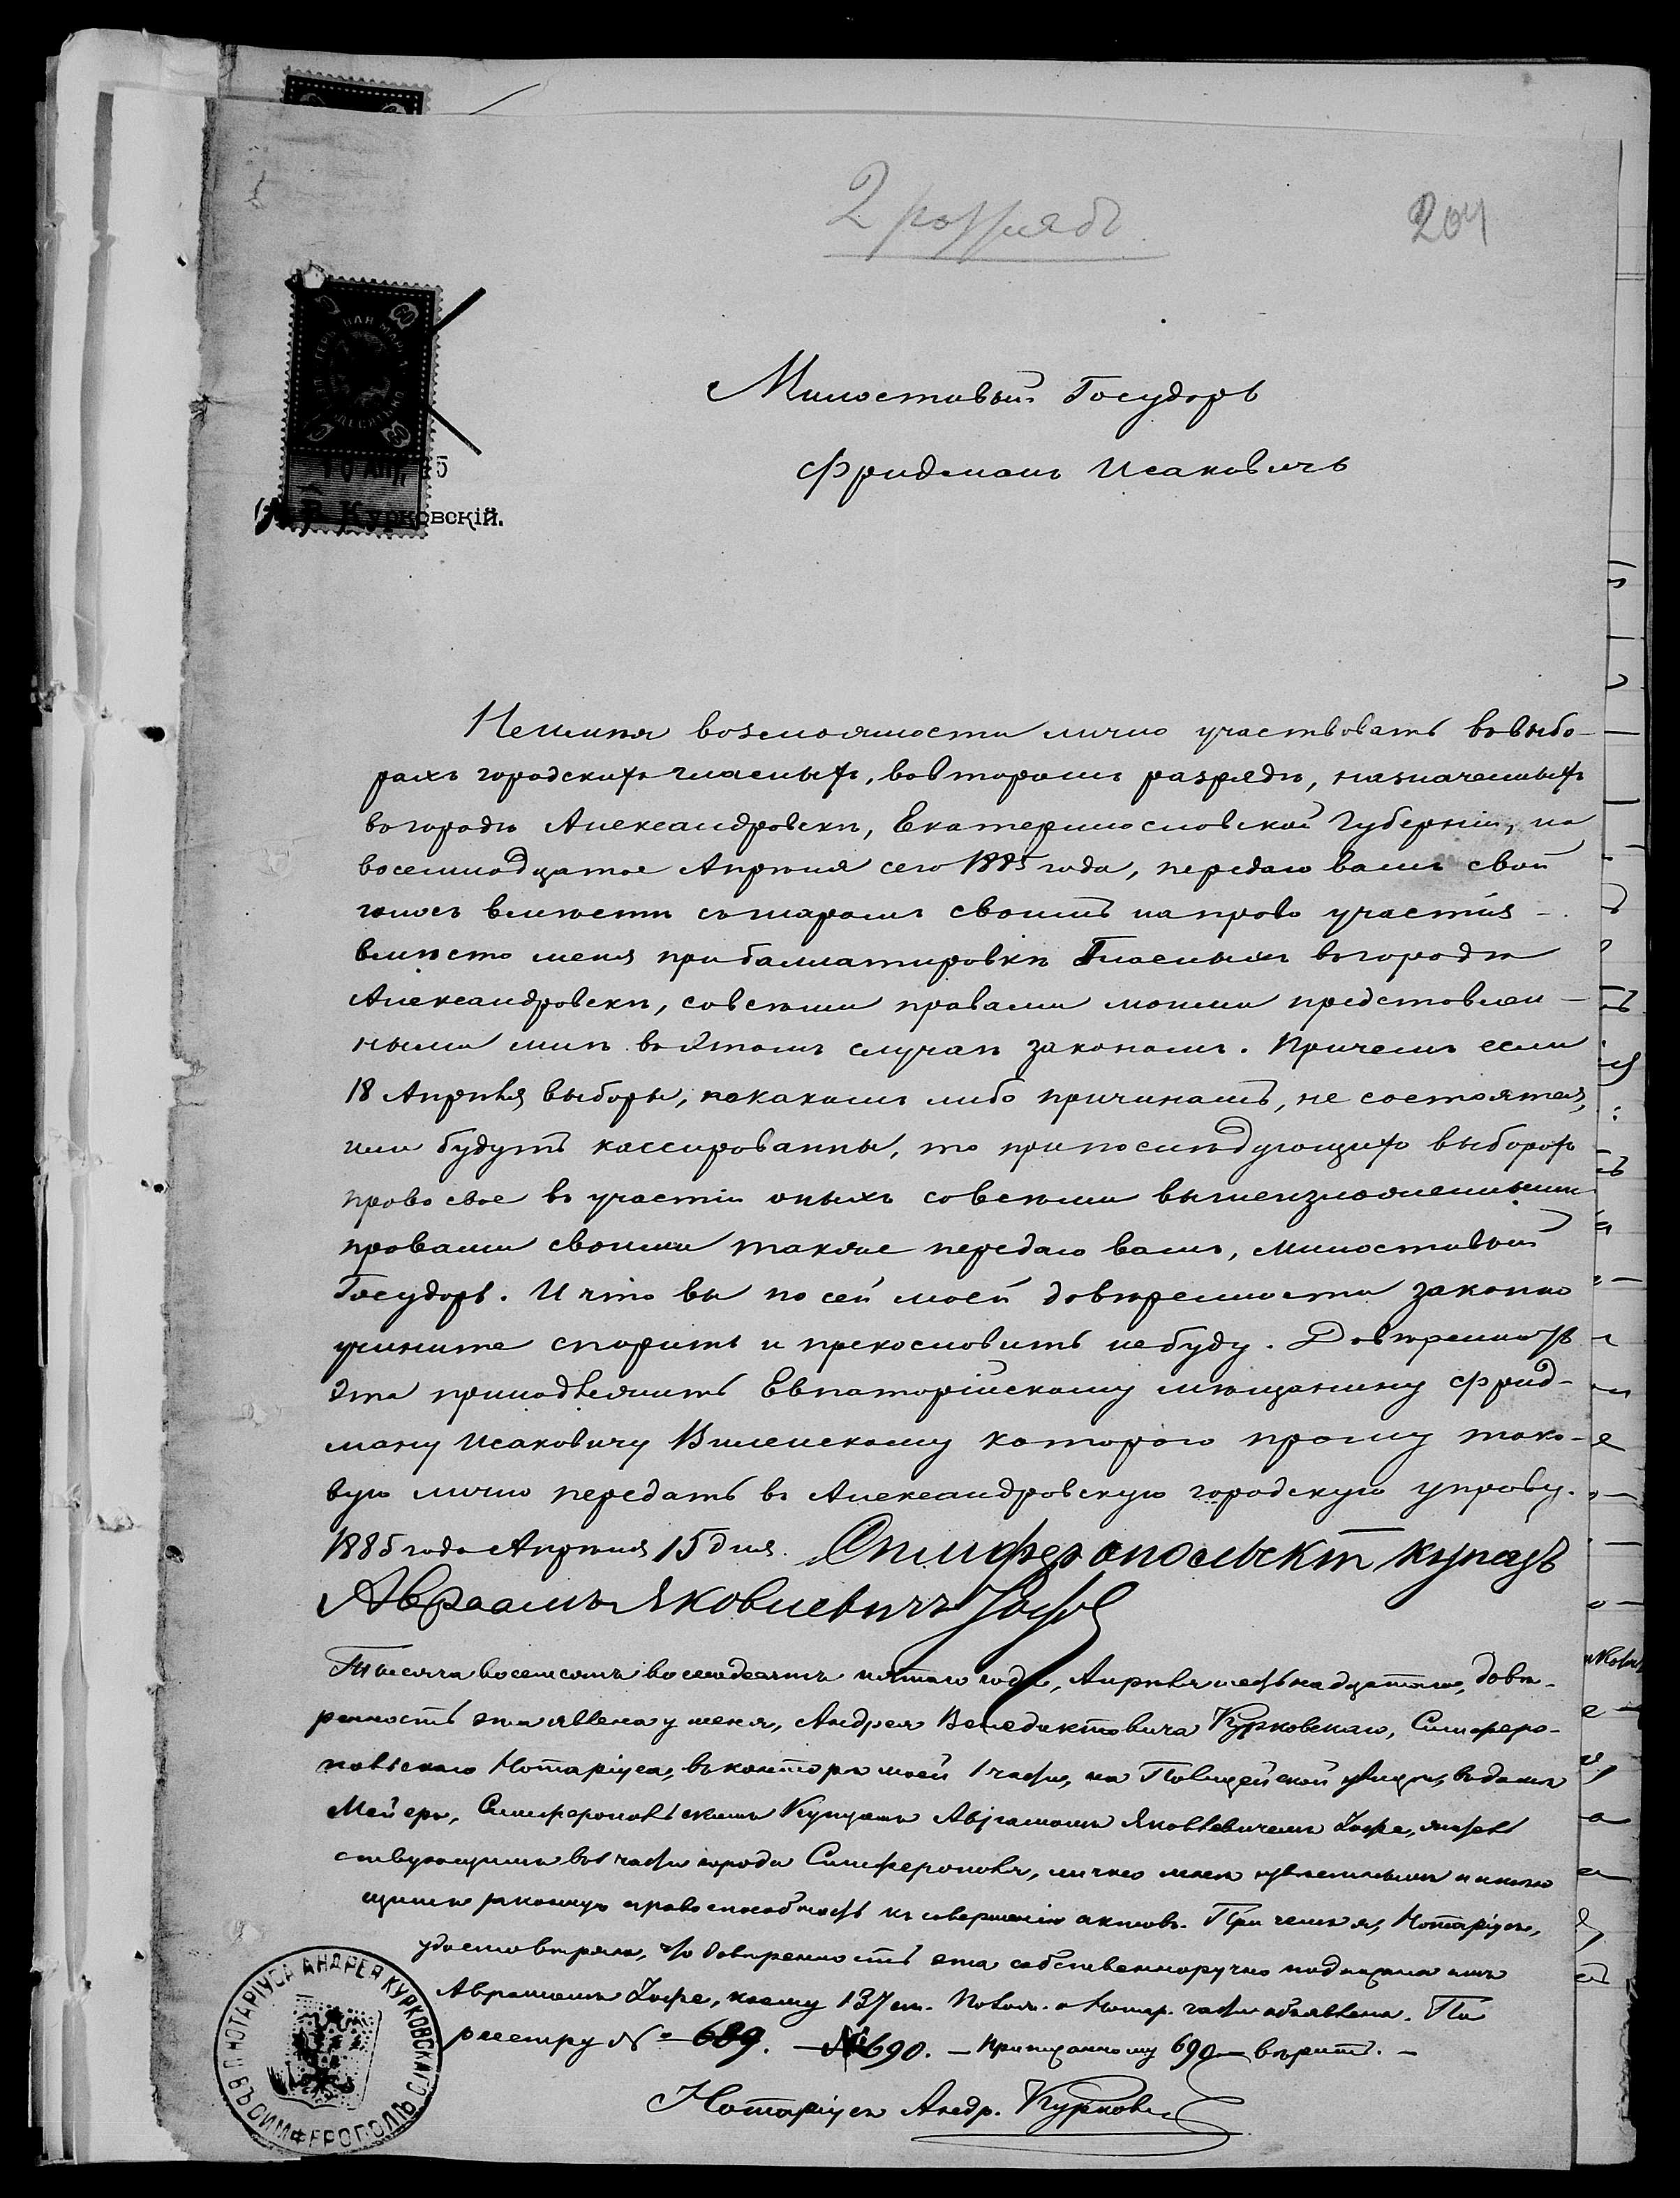 2 разрядъ
204
Милостивый Государь
Фридманъ Исаковичъ
16 АПР 85
А. В. Курковскій.
Неимѣя возможности лично участвовать въ выбо-
рахъ городскихъ гласныхъ, во второмъ разрядѣ, назначенныхъ
въ городѣ Александровскѣ, Екатеринославской Губерніи, на
восемнадцатое Апрѣля сего 1885 года, передаю вамъ свой
голосъ вмѣстѣ съ шаромъ своимъ на право участія
вмѣсто меня при баллатировкѣ Гласныхъ въ городѣ
Александровскѣ, со всѣми правами моими представлен-
ными мнѣ въ этомъ случаѣ закономъ. Причемъ если
18 Апрѣля выборы, по какимъ либо причинамъ, не состоятся,
или будутъ кассированны, то при послѣдующихъ выборахъ
право свое въ участіи оныхъ со всѣми вышеизложенными
правами своими также передаю вамъ, Милостивый
Государь. И что вы по сей моей довѣренности законно
учините спорить и прекословить не буду. Довѣренность
эта принадлежитъ Евпаторійскому мѣщанину Фрид-
ману Исаковичу Виленскому котораго прошу тако-
вую лично передать въ Александровскую городскую управу.
1885 года Апрѣля 15 дня. Симферопольскі купецъ
Авраамъ Яковлевичъ
Тысяча восемьсотъ восемьдесятъ пятаго года, Апрѣля шестнадцатаго, довѣ-
ренность эта явлена у меня, Андрея Венедиктовича Курковскаго, Симферо-
польскаго Нотаріуса, въ конторѣ моей 1 части, на Полицейской улицѣ, въ домѣ
Мейеръ, Симферопольскимъ Купцомъ Авраамомъ Яковлевичемъ
ствующимъ во 1 части города Симферополя, лично мнѣ извѣстнымъ и имѣю
щимъ законную правоспособность къ совершенію актовъ. При чемъ я, Нотаріусъ,
удостовѣряю, что довѣренность эта собственноручно подписана имъ
Авраамомъ коему 137 ст. Полож. о Нотар. части объявлена. По
реестру № 689. — № 690. — Приписанному 690 — вѣрить. —
Нотаріусъ Андр. Курковскій
ПЕЧАТЬ НОТАРІУСА АНДРЕЯ КУРКОВСКАГО ВЪ СИМФЕРОПОЛѢ